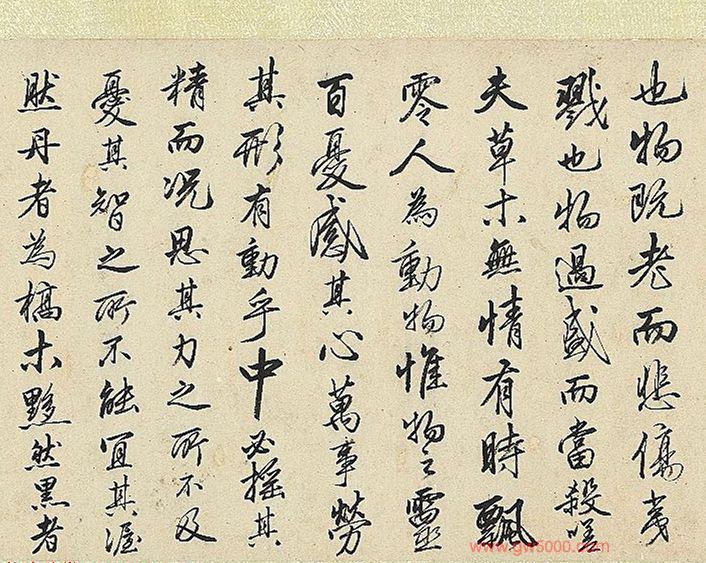 也物既老而悲傷夷
戮也物過盛而當殺嗟
夫草木無情有時飄
零人為動物惟物之靈
百憂感其心萬事勞
其形有動乎中必搖其
精而況思其力之所不及
憂其智之所不能宜其渥
然丹者為槁木黟然黑者
www.gw5000.com